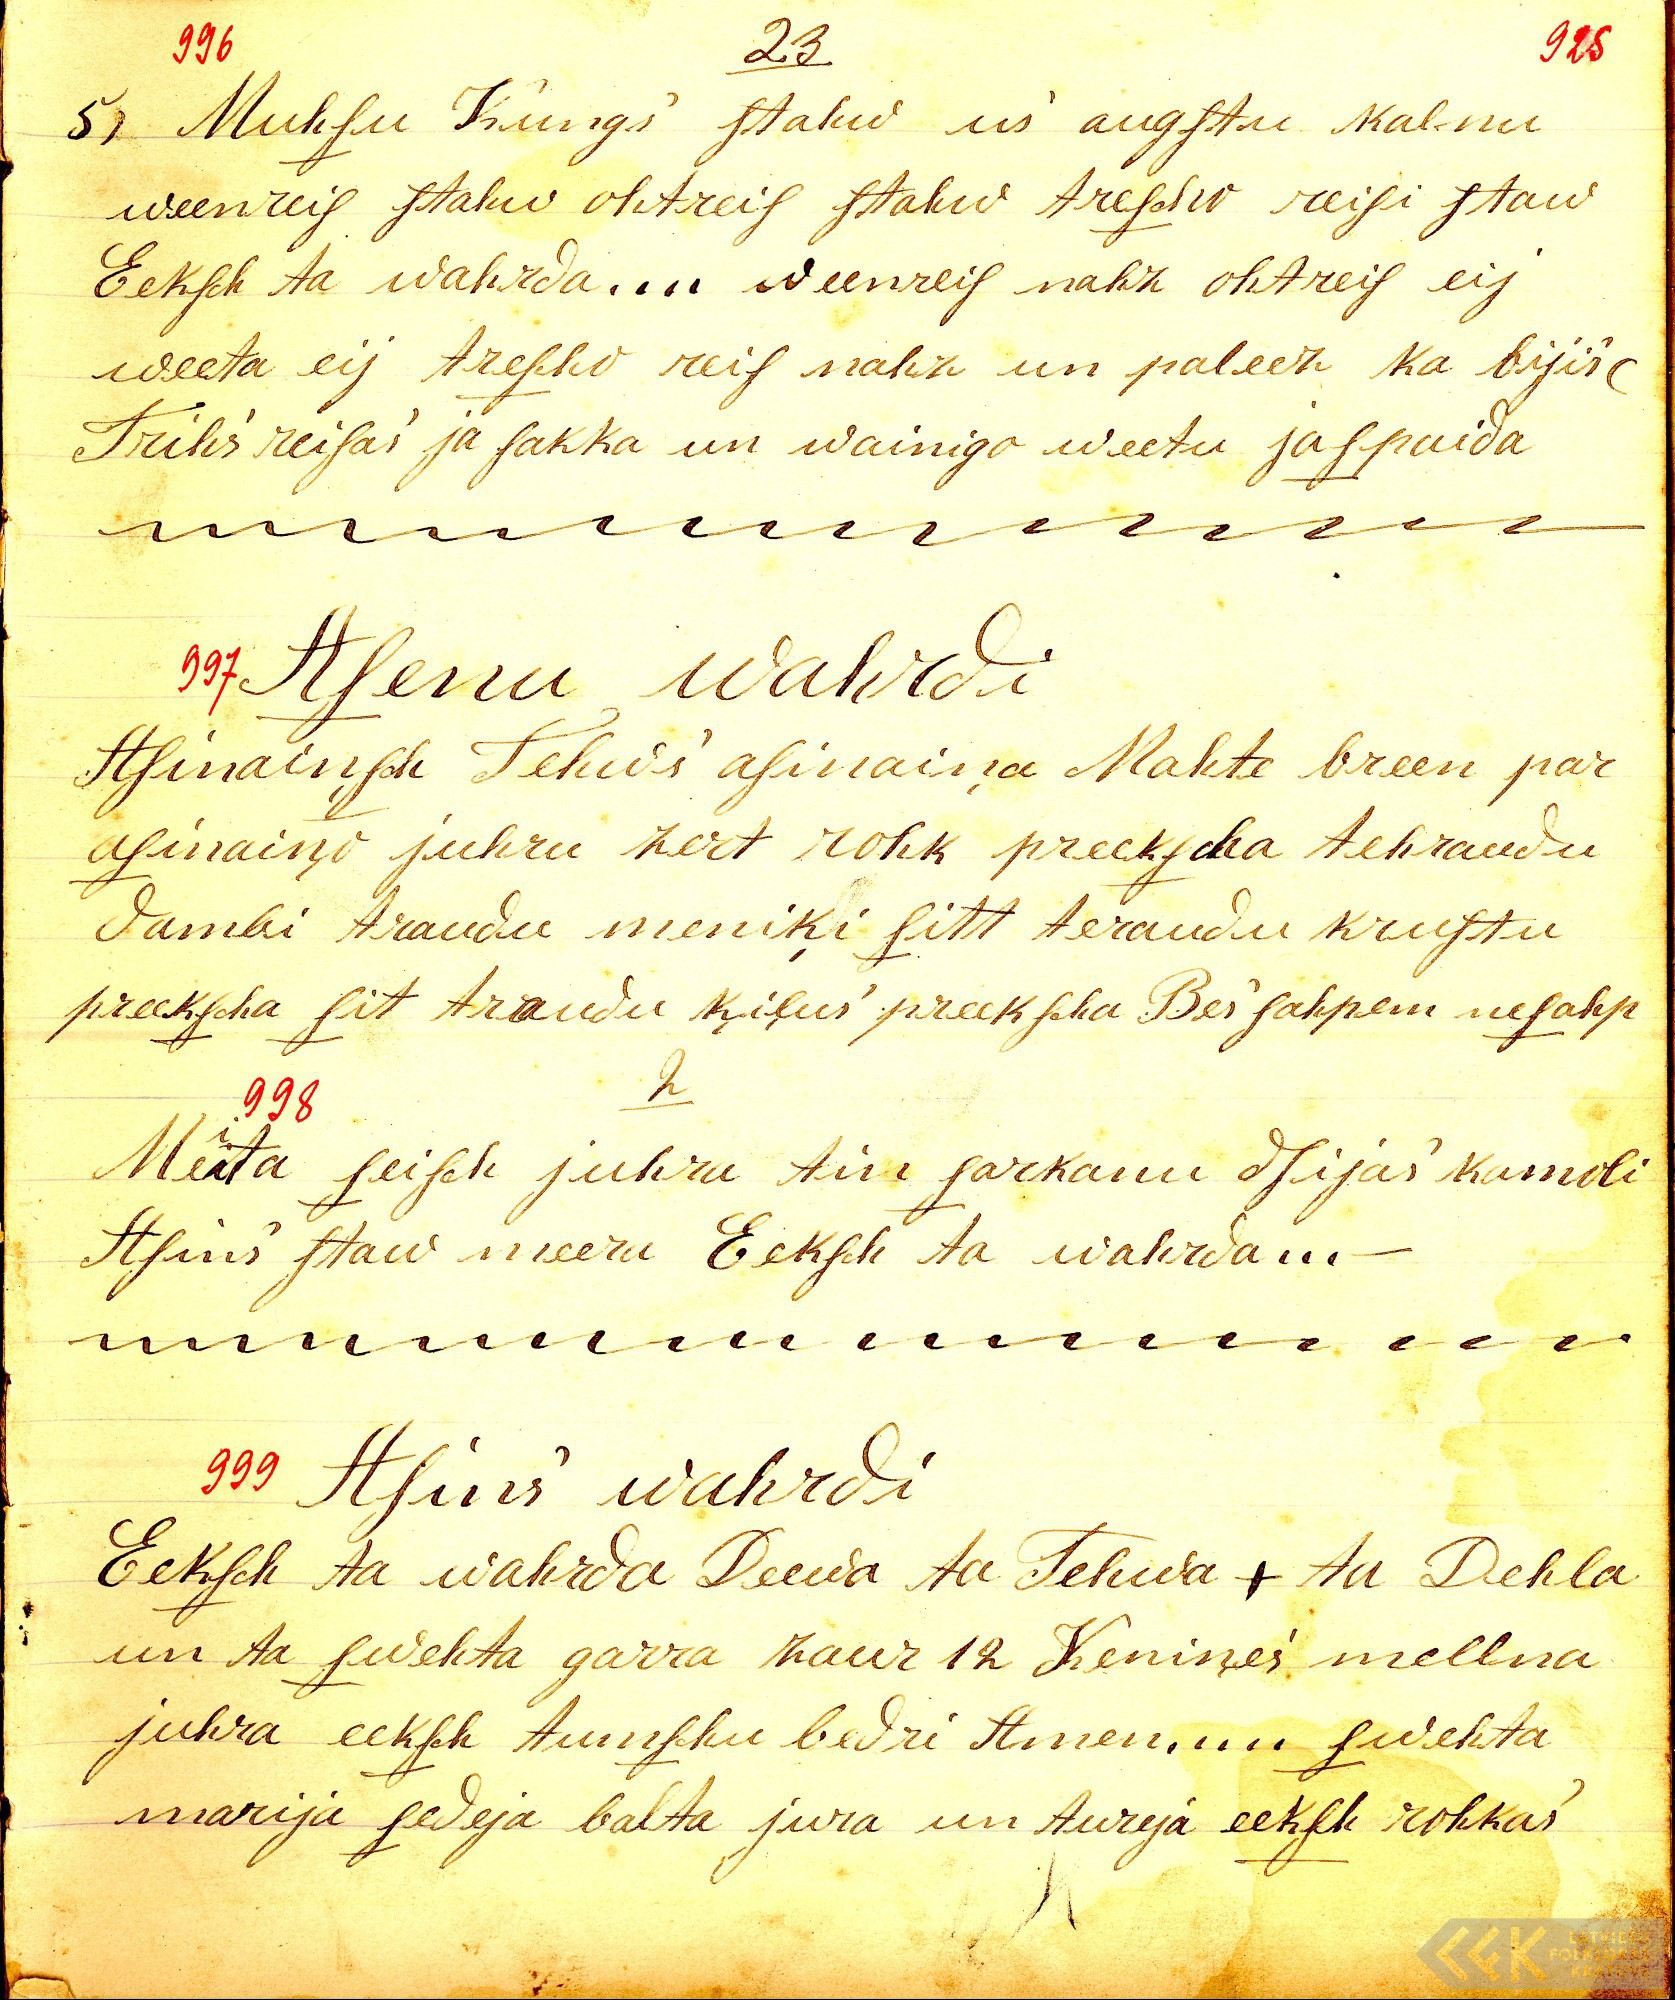 996 23 925
5) Muhſu Kungs ſtahw us augſtu Kalnu
weenreiſ ſtahw ohtreiſ ſtahw treſcho reiſi ſtaw
Eekſch ta wahrda.... weenreiſ nahk ohtreiſ eij
weeta eij treſcho reiſ nahk un paleek ka bijis
Trihs reiſas ja ſakka un wainigo weetu jaſpaida
997 Aſenu wahrdi
Aſinaiņſch Tehws aſinaiņa Mahte breen par
aſinaiņo juhru kert rohk preekſcha tehraudu
dambi traudu meniķi ſitt teraudu kruſtu
preekſcha ſit traudu ķiļus preekſcha Bes ſahpem neſahp
998 2
Meita ſeiſch juhra tin ſarkanu dſijas kamoli
Aſins ſtaw meeru Eekſch ta wahrda...—
999 Aſins wahrdi
Eekſch ta wahrda Deewa ta Tehwa + ta Dehla
un ta ſwehta garra kaur 12 Keniņes mellna
juhra eekſch tumſchu bedri Amen.... ſwehta
marija ſedeja balta jura un tureja eekſch rohkas
LATVIEŠU
FOLKLORAS
KRĀTUVE